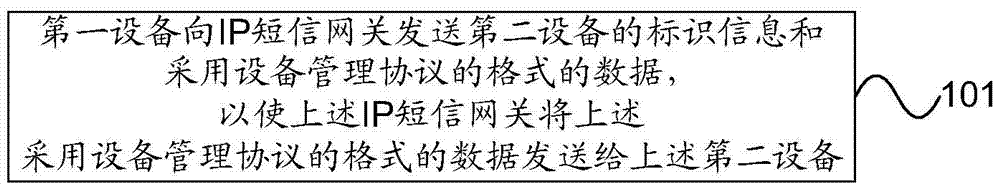 第一设备向IP短信网关发送第二设备的标识信息和
采用设备管理协议的格式的数据，
以使上述IP短信网关将上述
采用设备管理协议的格式的数据发送给上述第二设备
101